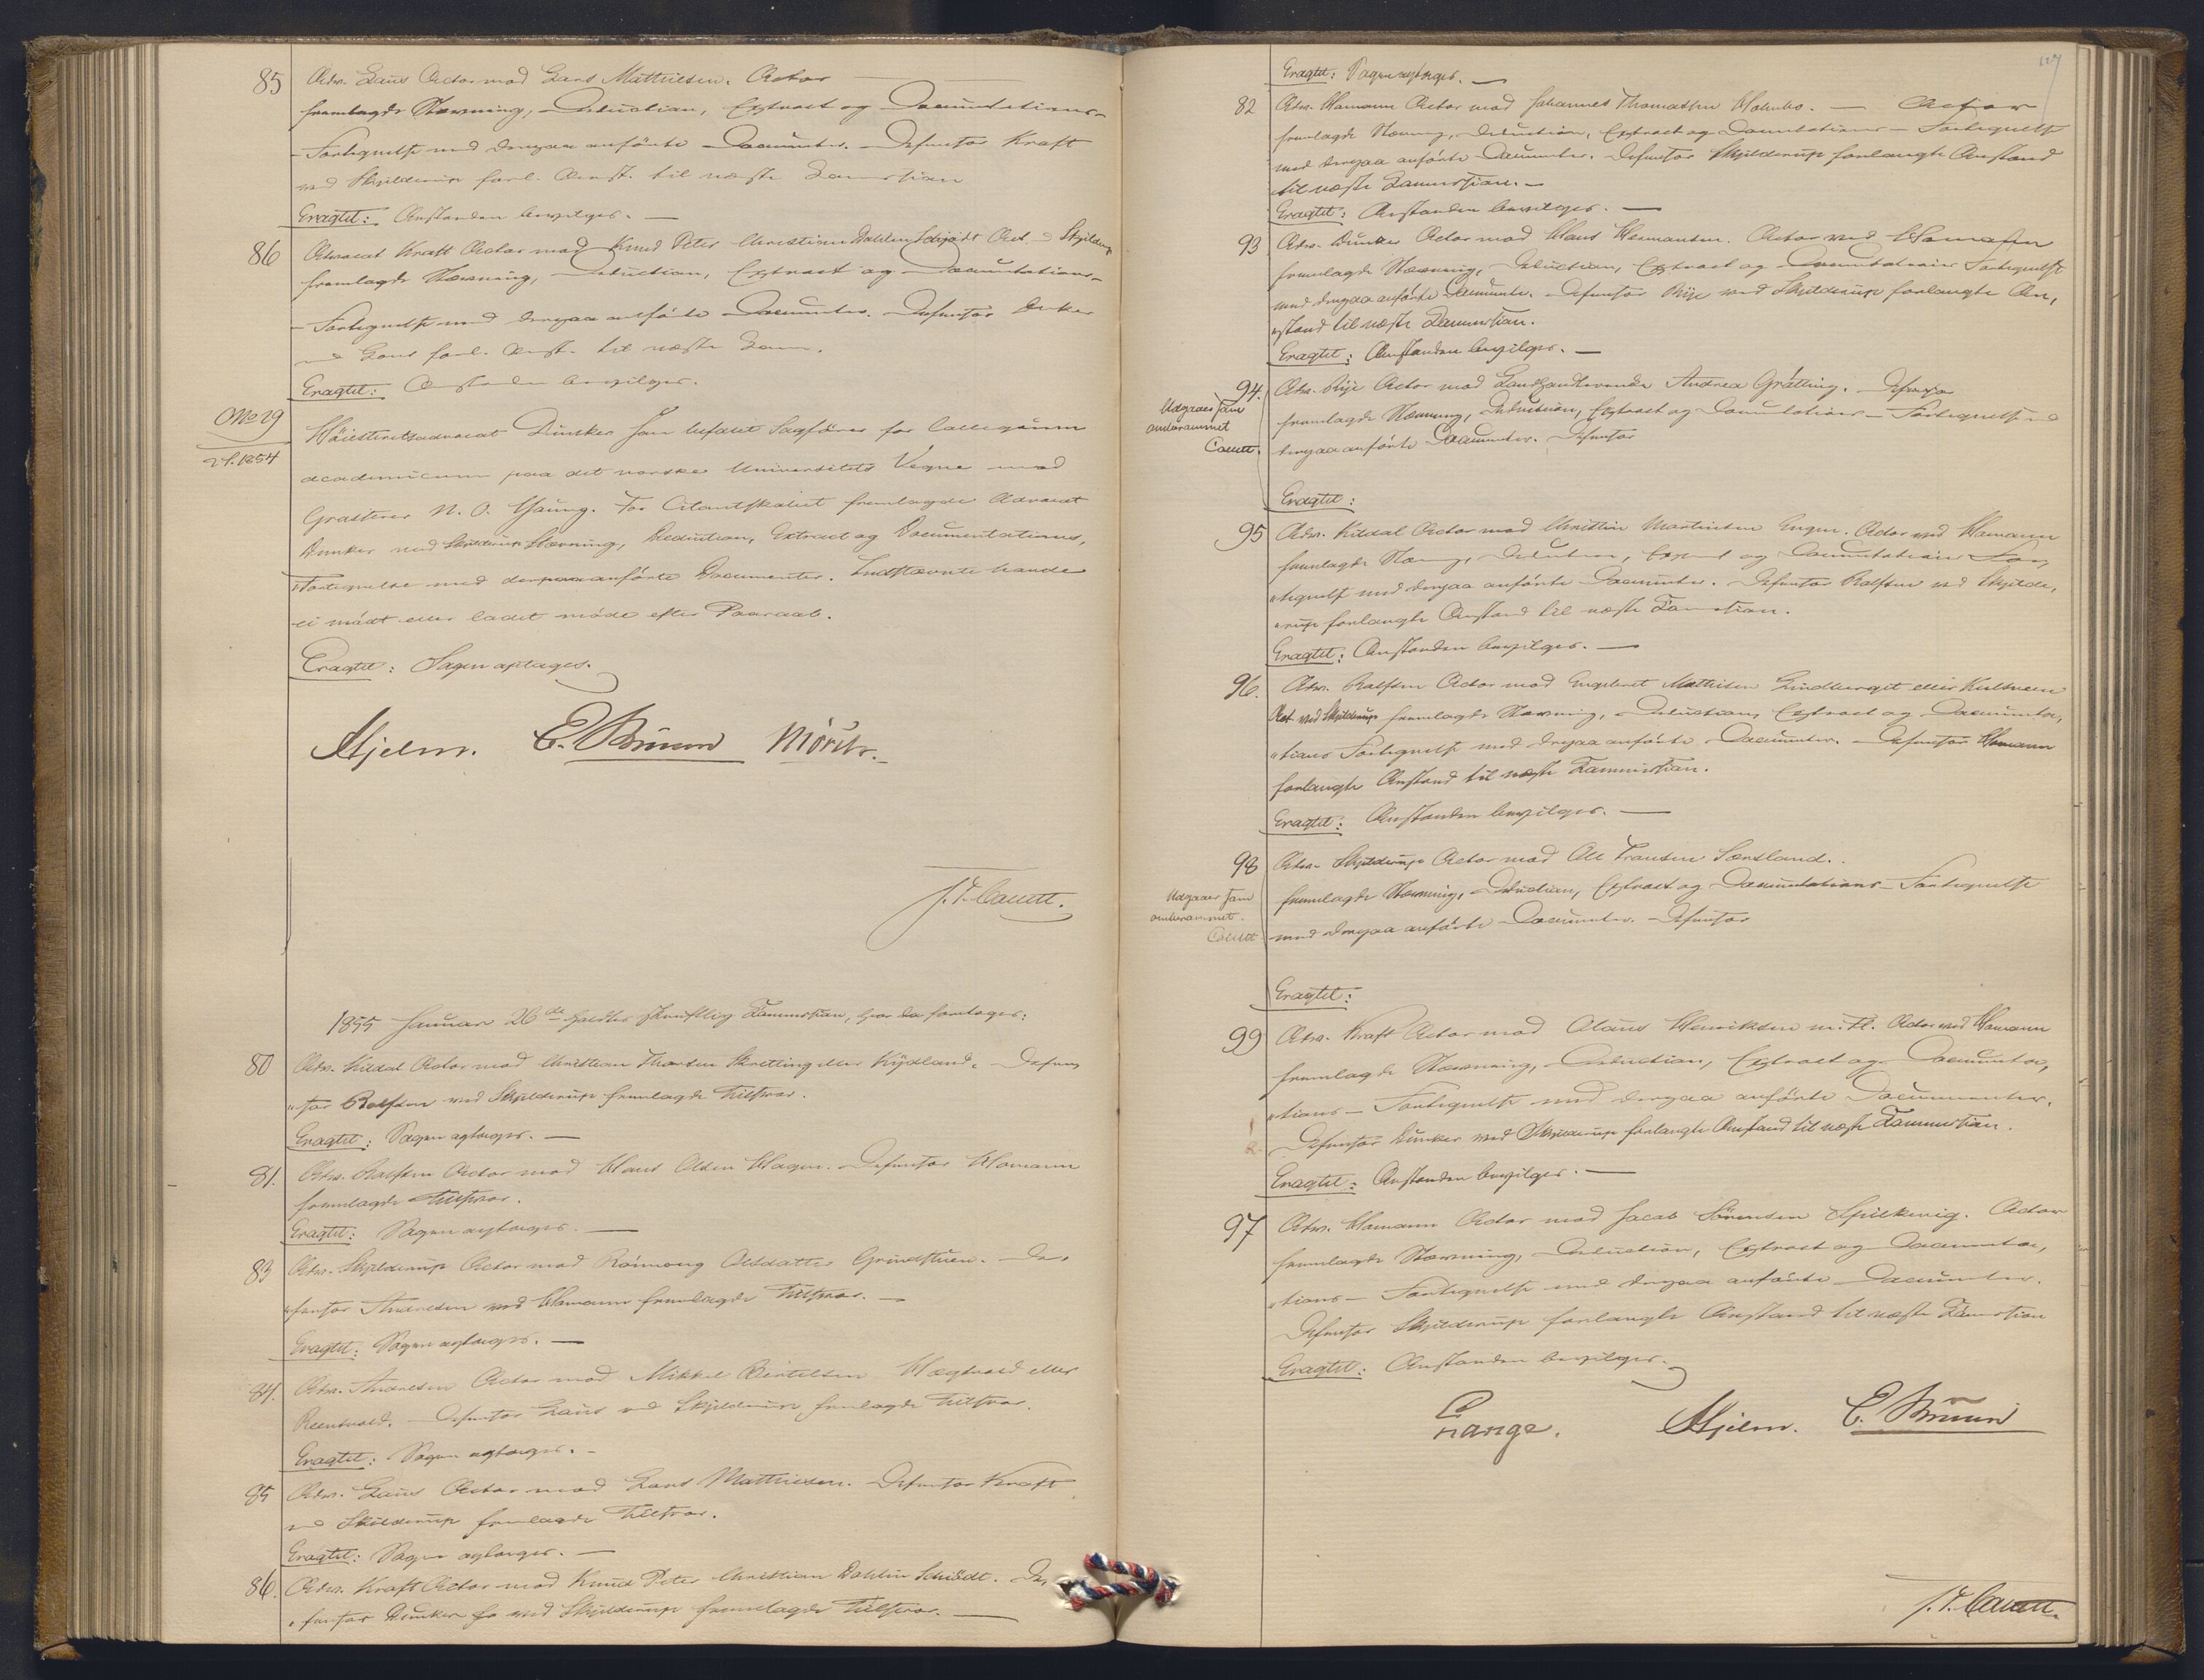 85 Adv. Laus Actor mod Lars Mathisen. Actor
fremlagde Stævning, Deduction, Extract og Documentations-
-Fortegnelse med derpaa anførte Documenter. Defensor Kraft
ved Skjelderup forl. Anst. til næste Lammession
Eragtet: Anstanden bevilges. —
86 Advocat Kraft Actor mod Knud Peter Christian Dahlin Schiødt Act. Skjelderup
fremlagde Stævning, Deduction, Extract og Documentations-
-Fortegnelse med derpaa anførte Documenter. Defensor Dunker
ved Laus forl. Anst. til næste
Eragtet: Anstanden bevilges.
No 29
1854
Høiesteretsadvocat Dunker som befalet Sagfører for Collegium
academicum paa det norske Universitets Vegne mod
Grosserer N. O. Young. For Citantskabet fremlagde Advocat
Dunker ved Skjelderup Stævning, Deduction, Extract og Documentations,
"Fortegnelse med derpaa anførte Documenter. Indstævnte havde
ei mødt eller ladet møde efter Paaraab.
Eragtet: Sagen optages.
Hjelm. E. Bruun Mørch.
J. F. Cauett.
1855 Januar 26de holdtes skriftlig Session, hvor da foretoges:
80 Adv. Kildal Actor mod Christian Thorsen Skretting eller Kydland. Defen,
"sor Rolfsen ved Skjelderup fremlagde Tilsvar.
Eragtet: Sagen optages. —
81. Adv. Rolfsen Actor mod Hans Olsen Hagen. Defensor Homann
fremlagde Tilsvar.
Eragtet: Sagen optages. —
83 Adv. Skjelderup Actor mod Rønnoug Olsdatter Grindstuen. De,
"fensor Andresen ved Homann fremlagde Tilsvar. —
Eragtet: Sagen optages. —
84. Adv. Andresen Actor mod Mikkel Bertelsen Hægtveid eller
Reentveid. Defensor Laus ved Skjelderup fremlagde Tilsvar.
Eragtet: Sagen optages. —
85 Adv. Laus Actor mod Lars Mathiesen. Defensor Kraft
ved Skjelderup fremlagde Tilsvar.
Eragtet: Sagen optages. —
86. Adv. Kraft Actor mod Knud Peter Christian Dahlin Schiødt. De,
"fensor Dunker ved Skjelderup fremlagde Tilsvar. —
127
Eragtet: Sagen optages. —
82 Adv. Homann Actor mod Johannes Thomassen Holmbo. — Actor
fremlagde Stævning, Deduction, Extract og Documentations-Fortegnelse
med derpaa anførte Documenter. Defensor Skjelderup forlangte Anstand
til næste Session. —
Eragtet: Anstanden bevilges. —
93 Adv. Dunker Actor mod Hans Hermansen. Actor ved Homann
fremlagde Stævning, Deduction, Extract og Documentations Fortegnelse
med derpaa anførte Documenter. Defensor Rije ved Skjelderup forlangte An,
"stand til næste Session.
Eragtet: Anstanden bevilges. —
94. Adv. Rije Actor mod Landhandlerende Andrea Grøtting. Defensor
Udgaaer som
omberammet
Cauett.
fremlagde Stævning, Deduction, Extract og Documentations-Fortegnelse med
derpaa anførte Documenter. Defensor
Eragtet:
95 Adv. Kildal Actor mod Christine Martinsen Engen. Actor ved Homann
fremlagde Stævning, Deduction, Extract og Documentations For,
"tegnelse med derpaa anførte Documenter. Defensor Rolfsen ved Skjelde,
"rup forlangte Anstand til næste Session.
Eragtet: Anstanden bevilges. —
96. Adv. Rolfsen Actor mod Engebret Mathisen Lindberget eller Kulsveen
Act ved Skjelderup fremlagde Stævning, Deduction, Extract og Documenta,
"tions Fortegnelse med derpaa anførte Documenter. Defensor Homann
forlangte Anstand til næste Session.
Eragtet: Anstanden bevilges. —
98 Adv. Skjelderup Actor mod Ole Transen Sørsland.
Udgaaer som
omberammet.
Cauett
fremlagde Stævning, Deduction, Extract og Documentations-Fortegnelse
med derpaa anførte Documenter. Defensor
Eragtet:
99 Adv. Kraft Actor mod Olaus Henriksen m. Fl. Actor ved Homann
fremlagde Stævning, Deduction, Extract og Documenta,
"tions-Fortegnelse med derpaa anførte Documenter.
Defensor Dunker ved Skjelderup forlangte Anstand til næste Session.
Eragtet: Anstanden bevilges. —
97 Adv. Homann Actor mod Jacob Sørensen Spilkevig. Actor
fremlagde Stævning, Deduction, Extract og Documenta,
"tions-Fortegnelse med derpaa anførte Documenter.
Defensor Skjelderup forlangte Anstand til næste Session
Eragtet: Anstanden bevilges.
Lange. Hjelm. E. Bruun
J. F. Cauett.